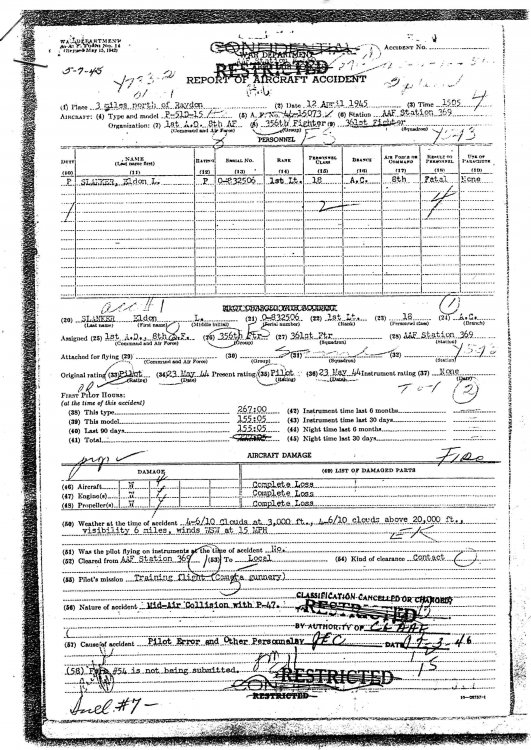 WAR DEPARTMENT
A. A. F. Form No. 14
(Revised May 15, 1942)
CONFIDENTIAL
ACCIDENT No.
WAR DEPARTMENT
RESTRICTED
5-7-45
REPORT OF AIRCRAFT ACCIDENT
(1) Place 3 miles north of Raydon (2) Date 12 April 1945 (3) Time 1505
AIRCRAFT: (4) Type and model P-51D-15 (5) A. F. No. 44-15073 (6) Station AAF Station 369
Organization: (7) 1st A.D. 8th AF (8) 356th Fighter (9) 361st Fighter
(Command and Air Force) (Group) (Squadron)
PERSONNEL
DUTY NAME (Last name first) RATING SERIAL NO. RANK PERSONNEL CLASS BRANCH AIR FORCE OR COMMAND RESULT TO PERSONNEL USE OF PARACHUTE
(10) (11) (12) (13) (14) (15) (16) (17) (18) (19)
P SLANKER, Eldon L. P O-832506 1st Lt. 18 A.C. 8th Fatal None
acc #1
PILOT CHARGED WITH ACCIDENT
(20) SLANKER Eldon L. (21) O-832506 (22) 1st Lt. (23) 18 (24) A.C.
(Last name) (First name) (Middle initial) (Serial number) (Rank) (Personnel class) (Branch)
Assigned (25) 1st A.D., 8th A.F. (26) 356th Ftr (27) 361st Ftr (28) AAF Station 369
(Command and Air Force) (Group) (Squadron) (Station)
Attached for flying (29) (30) (31) (32)
(Command and Air Force) (Group) (Squadron) (Station)
Original rating (33) Pilot (34) 23 May 44 Present rating (35) Pilot (36) 23 May 44 Instrument rating (37) None
(Rating) (Date) (Rating) (Date) (Date)
FIRST PILOT HOURS:
(at the time of this accident)
(38) This type 267:00 (42) Instrument time last 6 months
(39) This model 155:05 (43) Instrument time last 30 days
(40) Last 90 days 155:05 (44) Night time last 6 months
(41) Total (45) Night time last 30 days
AIRCRAFT DAMAGE
Fire
DAMAGE (49) LIST OF DAMAGED PARTS
(46) Aircraft W Complete Loss
(47) Engine(s) W Complete Loss
(48) Propeller(s) W Complete Loss
(50) Weather at the time of accident 4-6/10 clouds at 3,000 ft., 4-6/10 clouds above 20,000 ft.,
visibility 6 miles, winds WSW at 15 MPH
(51) Was the pilot flying on instruments at the time of accident No.
(52) Cleared from AAF Station 369 (53) To Local (54) Kind of clearance Contact
(55) Pilot's mission Training flight (Camera gunnery)
CLASSIFICATION CANCELLED OR CHANGED
(56) Nature of accident Mid-Air Collision with P-47.
RESTRICTED
BY AUTHORITY OF CG AAF
(57) Cause of accident Pilot Error and Other Personnel JEC DATE
(58) Form #54 is not being submitted.
RESTRICTED
RESTRICTED
Incl #7-